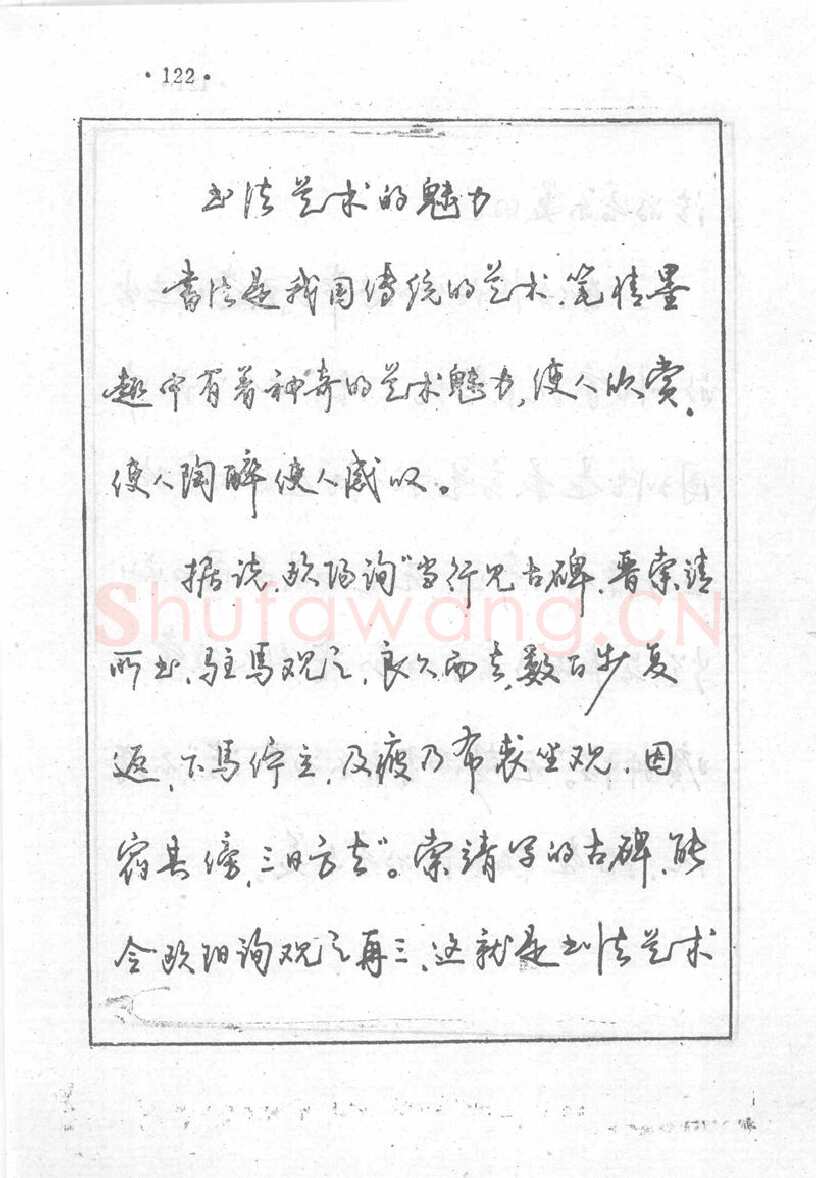 ·122·
书法艺术的魅力
書法是我国传统的艺术,笔情墨
趣中有着神奇的艺术魅力,使人欣赏,
使人陶醉使人感叹。
据说,欧阳询“当行见古碑,晋索靖
所书,驻马观之,良久而去,数百步复
返,下马伫立,及疲乃布裘坐观,因
宿其傍,三日方去”。索靖写的古碑,能
令欧阳询观之再三,这就是书法艺术
Shufawang.CN